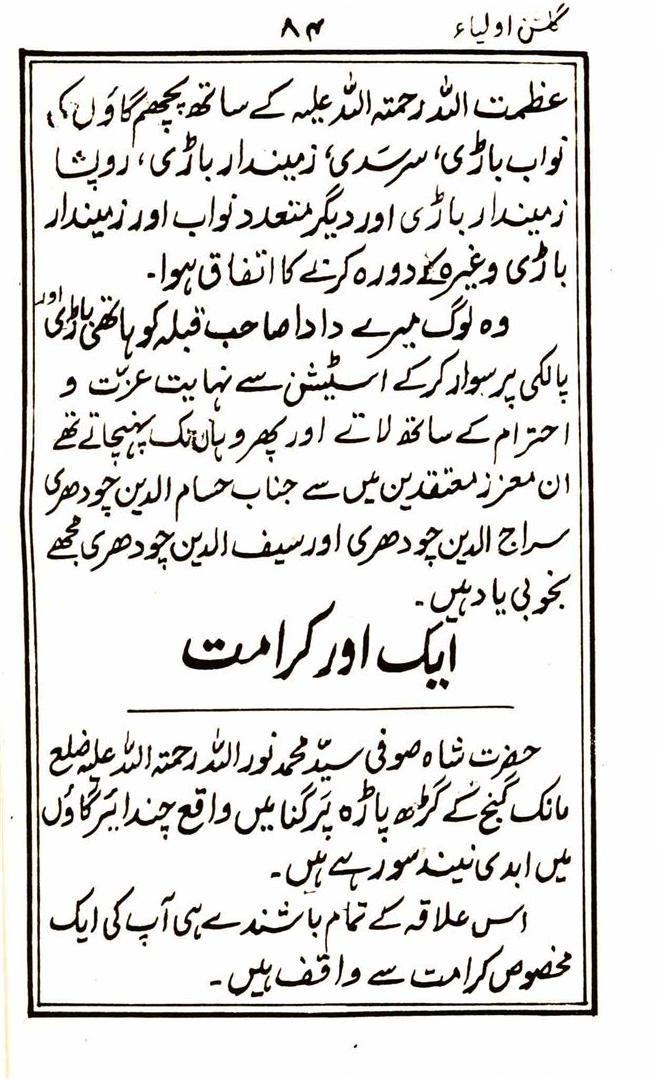 گلشن اولیاء ۸۴
عظمت اللہ رحمتہ اللہ علیہ کے ساتھ پچھم گاؤں کی
نواب باڑی، سرسدی، زمیندار باڑی، روپشا
زمیندار باڑی اور دیگر متعدد نواب اور زمیندار
باڑی وغیرہ کے دورہ کرنے کا اتفاق ہوا۔
وہ لوگ میرے دادا صاحب قبلہ کو ہاتھی باڑی اور
پالکی پر سوار کر کے اسٹیشن سے نہایت عزّت و
احترام کے ساتھ لاتے اور پھر وہاں تک پہنچاتے تھے
ان معزز معتقدین میں سے جناب حسام الدین چودھری
سراج الدین چودھری اور سیف الدین چودھری مجھے
بخوبی یاد ہیں۔
ایک اور کرامت
حضرت شاہ صوفی سیّد محمد نور اللہ رحمتہ اللہ علیہ ضلع
مانک گنج کے گڑھ پاڑہ پَرگنا میں واقع چندائر گاؤں
میں ابدی نیند سو رہے ہیں۔
اس علاقہ کے تمام باشندے ہی آپ کی ایک
مخصوص کرامت سے واقف ہیں۔